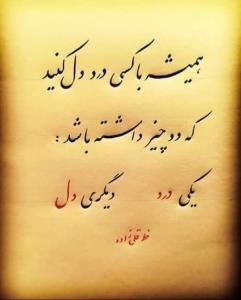 همیشه با کسی درد دل کنید
که دو چیز داشته باشد :
یکی درد دیگری دل
خط قلی زاده